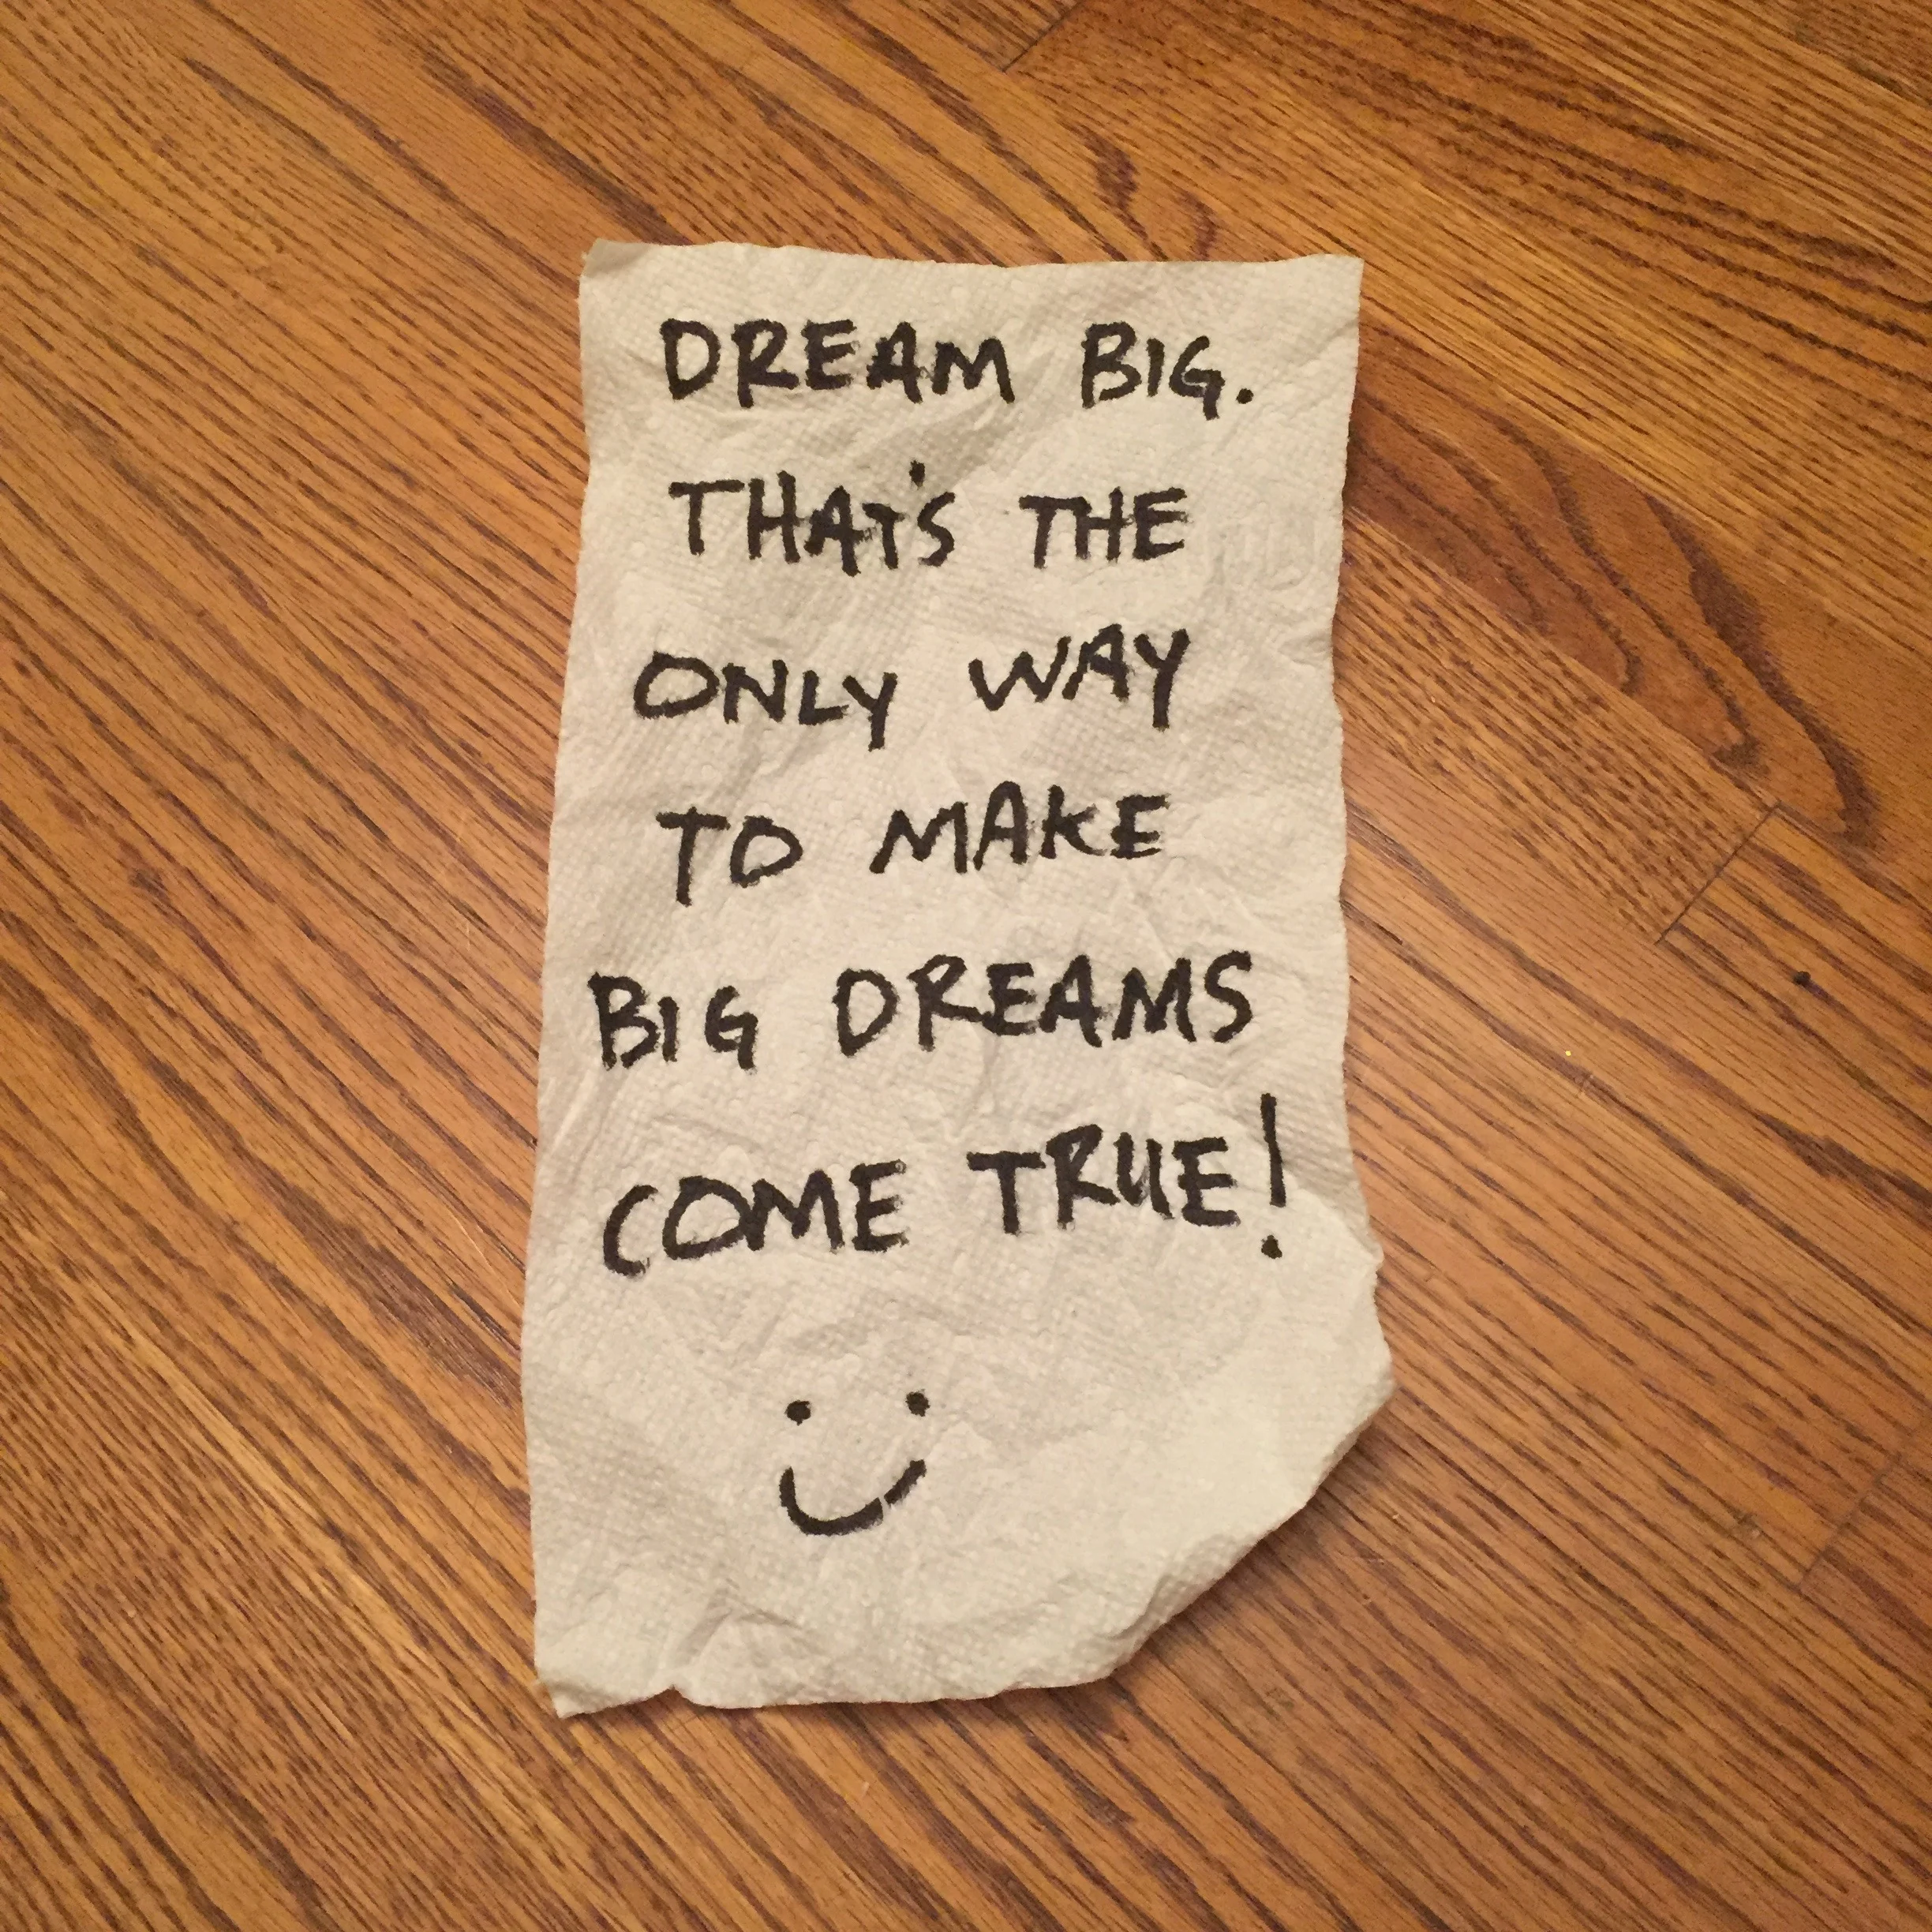 DREAM BIG.
THAT'S THE
ONLY WAY
TO MAKE
BIG DREAMS
COME TRUE!